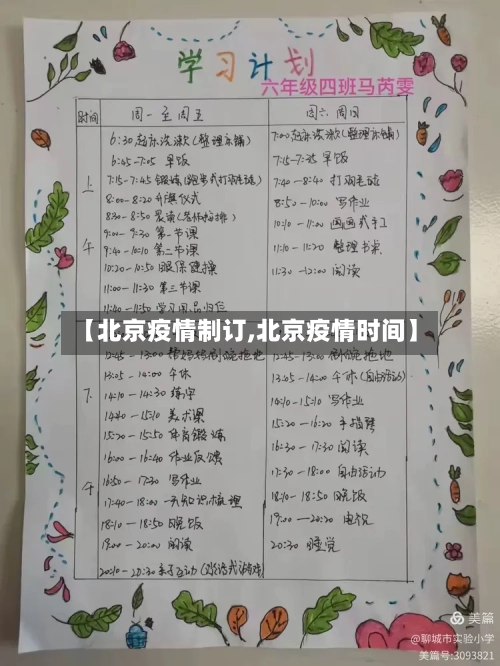 学习计划
六年级四班马芮雯
时间 周一至周五 周六、周日
上
午
6:30 起床洗漱(整理床铺)
6:45-7:05 早饭
7:15-7:45 锻炼(跑步或打羽毛球)
8:00-8:20 升旗仪式
8:30-8:50 晨读
9:00-9:30 第一节课
9:40-10:10 第二节课
10:20-10:50 眼保健操
11:00-11:30 第三节课
11:40-11:50 学习用品归位
7:00 起床洗漱(整理床铺)
7:15-7:35 早饭
7:40-8:40 打羽毛球
8:50-10:00 写作业
10:10-11:00 画画或手工
11:10-11:20 整理书桌
11:30-12:00 阅读
【北京疫情制订,北京疫情时间】
下
午
12:45-13:00 帮妈妈刷碗拖地
13:05-14:00 午休
14:10-14:30 练字
14:40-15:10 美术课
15:20-15:50 体育锻炼
16:00-16:40 作业反馈
16:50-17:30 写作业
17:40-18:00 知识梳理
18:10-18:50 晚饭
19:00-20:00 阅读
20:10-20:30 亲子互动
12:45-13:00 刷碗拖地
13:05-14:00 午休(自由活动)
14:10-15:10 写作业
15:20-16:20
16:30-17:30 阅读
17:30-18:00 自由活动
18:10-18:50 晚饭
19:00-20:20 电视
20:30 睡觉
美篇
@聊城市实验小学
美篇号:3093821